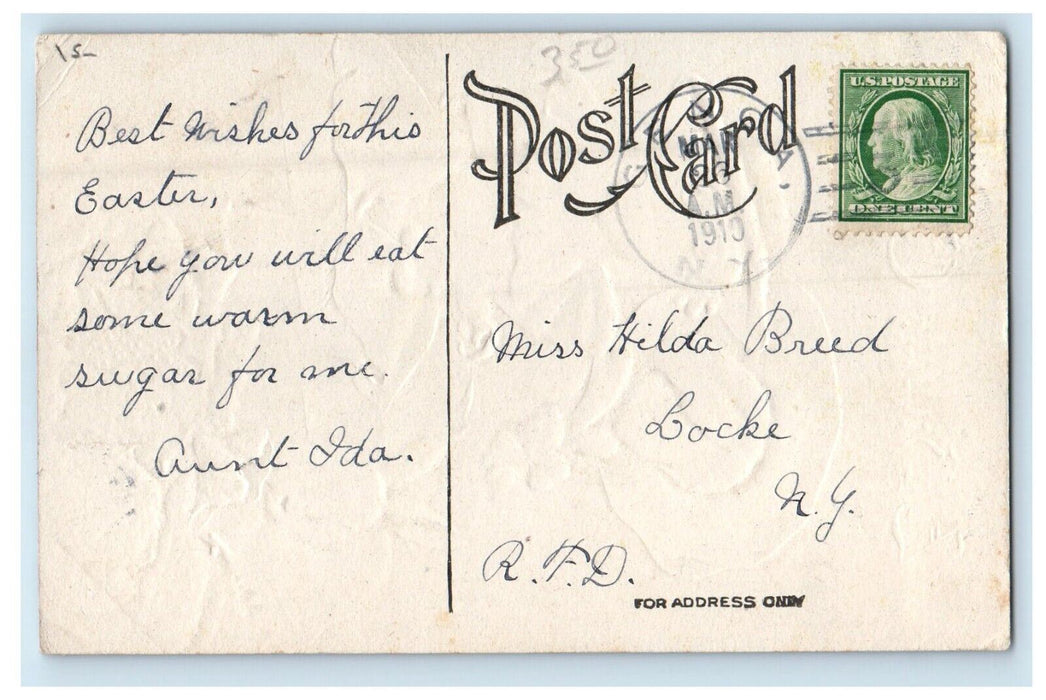 15-
350
Post Card
U.S. POSTAGE
ONE CENT
MAR
A.M.
1910
N Y
Best Wishes for this
Easter,
Hope you will eat
some warm
sugar for me.
Aunt Ida.
Miss Hilda Breed
Locke
N.Y.
R.F.D.
FOR ADDRESS ONLY